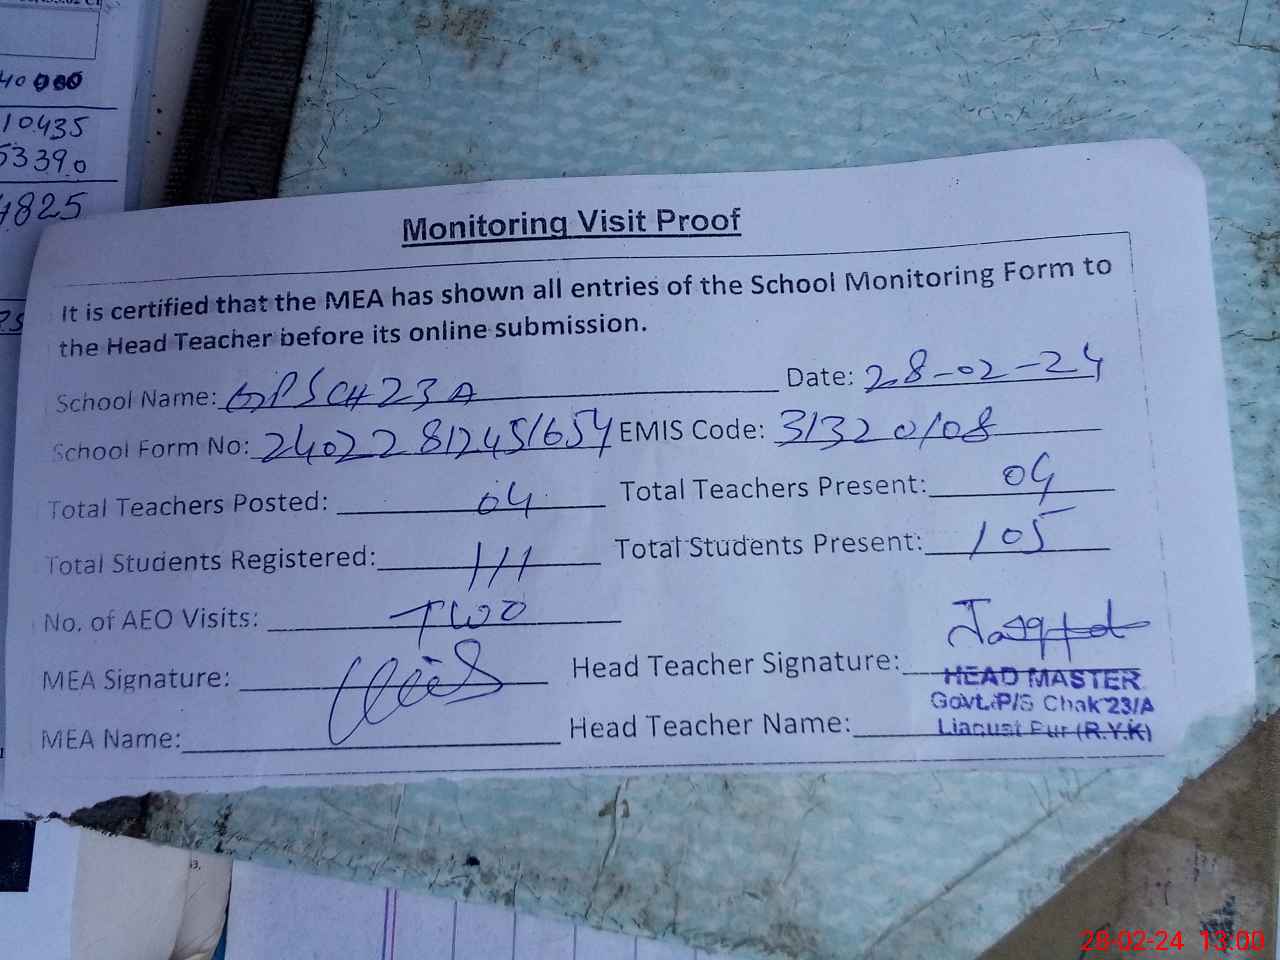 40000
10435
53390
4825
Monitoring Visit Proof
It is certified that the MEA has shown all entries of the School Monitoring Form to
the Head Teacher before its online submission.
School Name: GPS CH 23 A Date: 28-02-24
School Form No: 24022812451654 EMIS Code: 31320108
Total Teachers Posted: 04 Total Teachers Present: 04
Total Students Registered: 111 Total Students Present: 105
No. of AEO Visits: TWO
MEA Signature: Head Teacher Signature:
HEAD MASTER
Govt. P/S Chak 23/A
Liaquat Pur (R.Y.K)
MEA Name: Head Teacher Name:
28-02-24 13:00